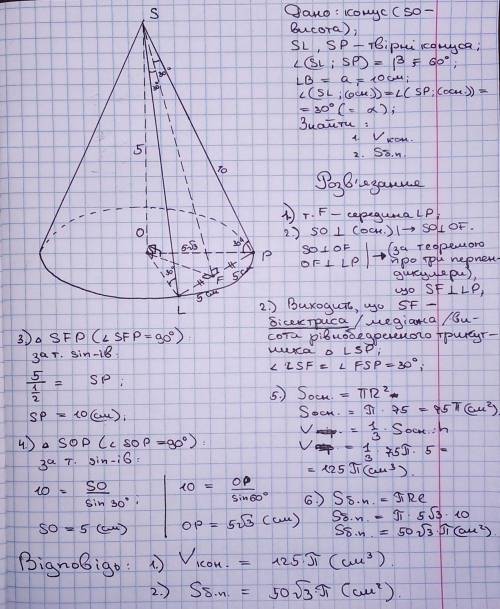 S
30°
30°
5
10
O
5√3
30°
P
30°
F
5 см
5 см
L
Дано: конус (SO –
висота);
SL, SP – твірні конуса;
∠(SL; SP) = β = 60°;
LB = a = 10 см;
∠(SL; (осн.)) = ∠(SP; (осн.)) =
= 30° (= α);
Знайти:
1. Vкон.
2. Sб.п.
Розв'язання
1.) т. F – середина LP;
2.) SO ⊥ (осн.) | → SO ⊥ OF.
SO ⊥ OF
OF ⊥ LP | → (за теоремою
про три перпен-
дикуляри),
що SF ⊥ LP;
2.) Виходить, що SF –
бісектриса / медіана / ви-
сота рівнобедреного трикут-
ника △ LSP;
∠ LSF = ∠ FSP = 30°;
3.) △ SFP (∠ SFP = 90°):
за т. sin-ів:
5 / 1/2 = SP;
SP = 10 (см);
4.) △ SOP (∠ SOP = 90°):
за т. sin-ів:
10 = SO / sin 30° | 10 = OP / sin 60°
SO = 5 (см) | OP = 5√3 (см)
5.) Sосн. = πR²
Sосн. = π · 75 = 75π (см²)
V = 1/3 Sосн. · h
V = 1/3 · 75π · 5 =
= 125π (см³)
6.) Sб.п. = πRl
Sб.п. = π · 5√3 · 10
Sб.п. = 50√3 · π (см²)
Відповідь: 1.) Vкон. = 125·π (см³).
2.) Sб.п. = 50√3·π (см²).